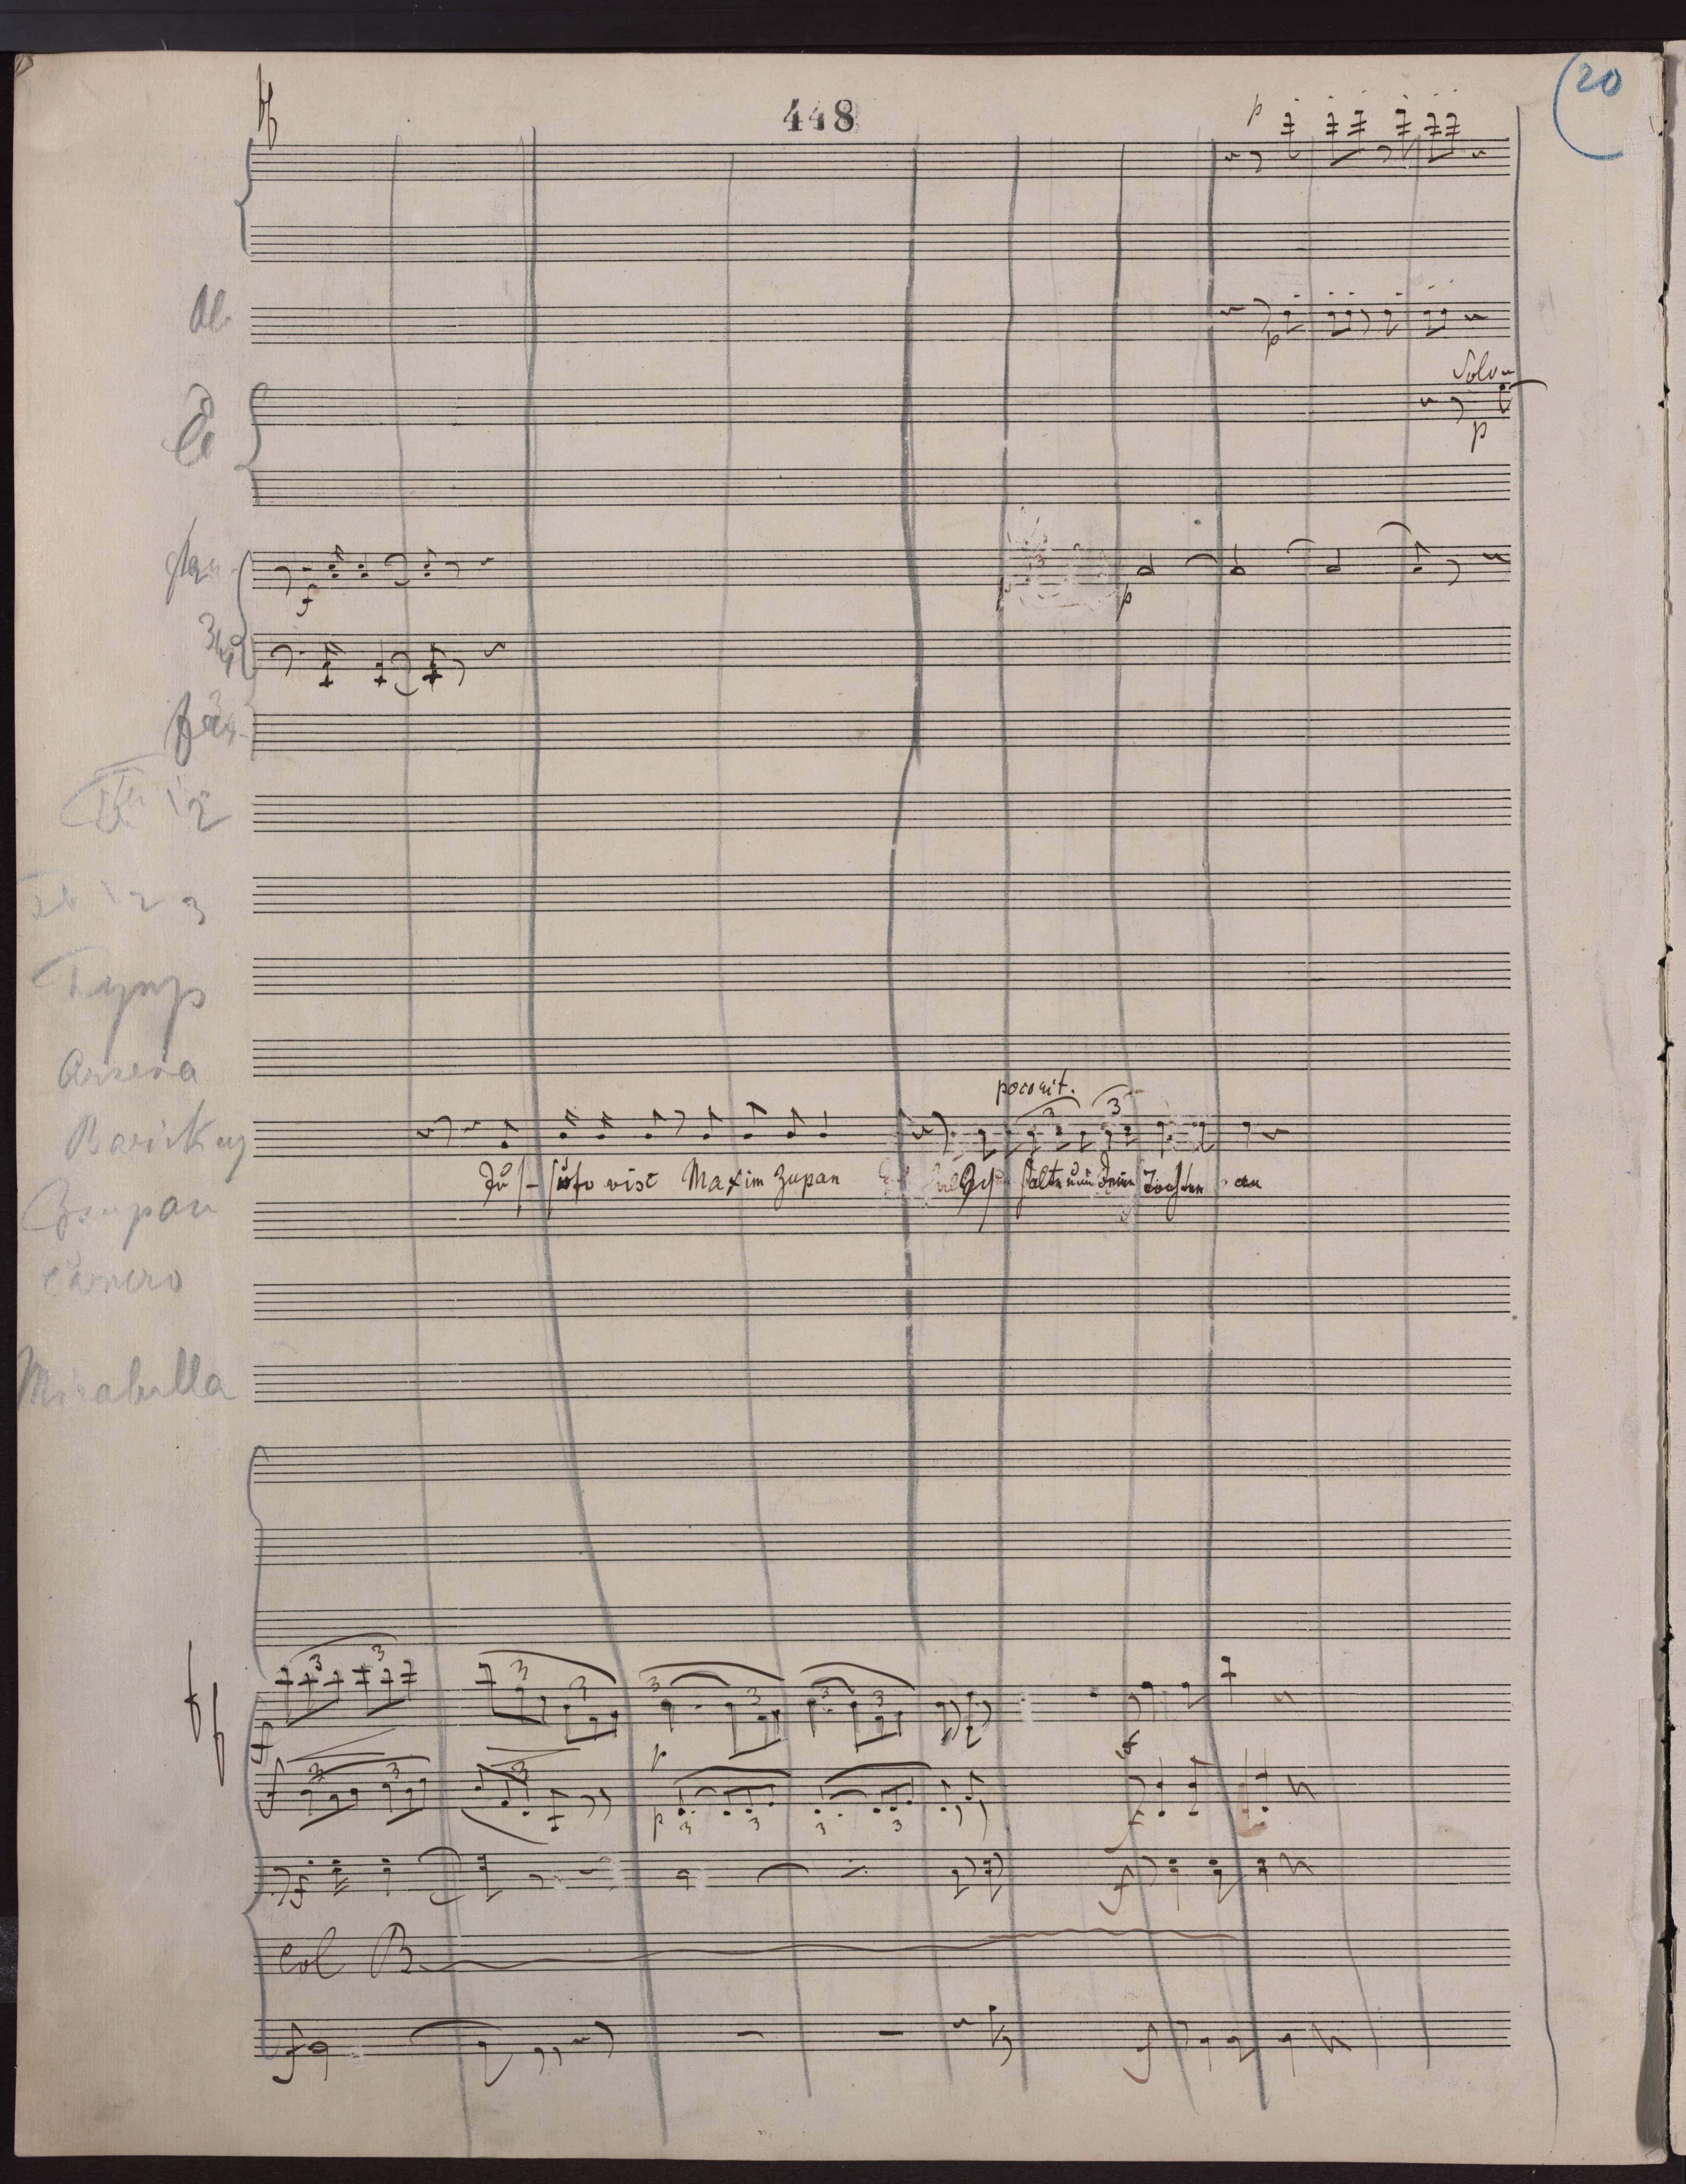 448
20
p
Ob.
p
Solo
Cl
p
f
p
3/4
Fag.
1 2
1 2 3
Tymp
Arsena
poco rit.
3 3
Barinkay
Maxim Zupan halte um Deine Tochter an
Zsupan
Carnero
Mirabella
3 3 3 3 3 3 3 3
f p f
3 3 3
f p 3 3 3 3 f
f f
Col B.
f f